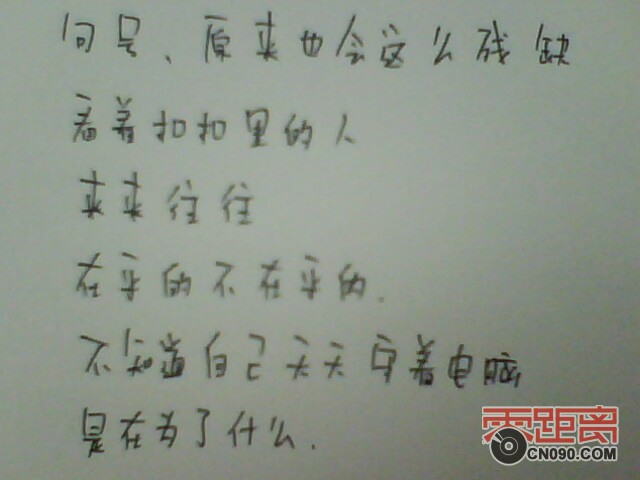 句号、原来也会这么残缺
看着扣扣里的人
来来往往
在乎的不在乎的.
不知道自己天天守着电脑
是在为了什么.
零距离
CN090.COM